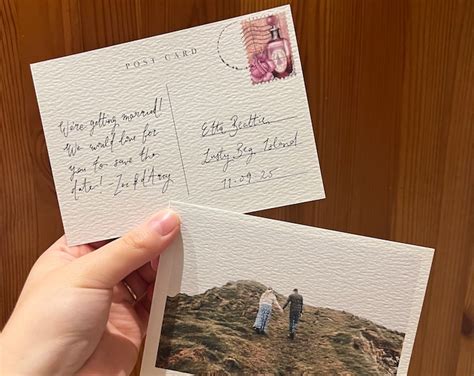 POST CARD
We're getting married!
We would love for
you to save the
date! - Zoe & d'Arcy
Etta Beattie
Lusty Beg Island
11.09.25